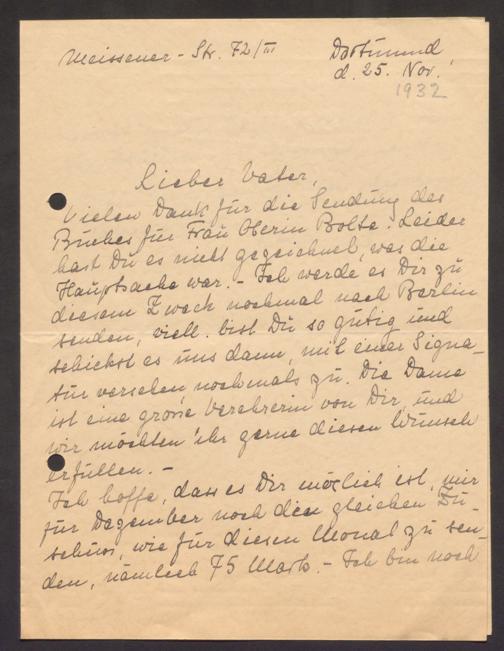 Meissener-Str. 72/III
Dortmund
d. 25. Nov.
1932
Lieber Vater,
Vielen Dank für die Sendung des
Buches für Frau Oberin Bolte. Leider
hast Du es nicht gezeichnet, was die
Hauptsache war. - Ich werde es Dir zu
diesem Zweck nochmal nach Berlin
senden, viell. bist Du so gütig und
schickst es uns dann, mit einer Signa-
tur versehen, nochmals zu. Die Dame
ist eine große Verehrerin von Dir, und
wir möchten ihr gerne diesen Wunsch
erfüllen. -
Ich hoffe, dass es Dir möglich ist, mir
für Dezember noch den gleichen Zu-
schuss, wie für diesen Monat zu sen-
den, nämlich 75 Mark. - Ich bin noch